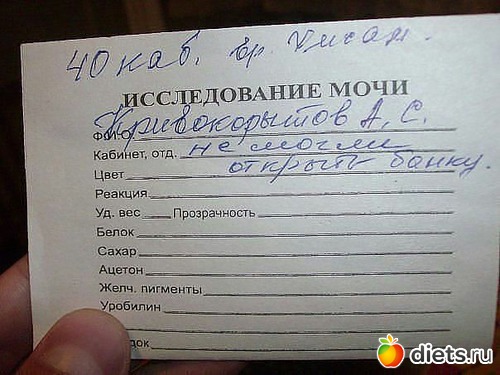 40 каб. вр.
ИССЛЕДОВАНИЕ МОЧИ
Ф.И.О. Кривокорытов А. С.
Кабинет, отд. не смогли
Цвет открыть банку.
Реакция
Уд. вес Прозрачность
Белок
Сахар
Ацетон
Желч. пигменты
Уробилин
док
diets.ru